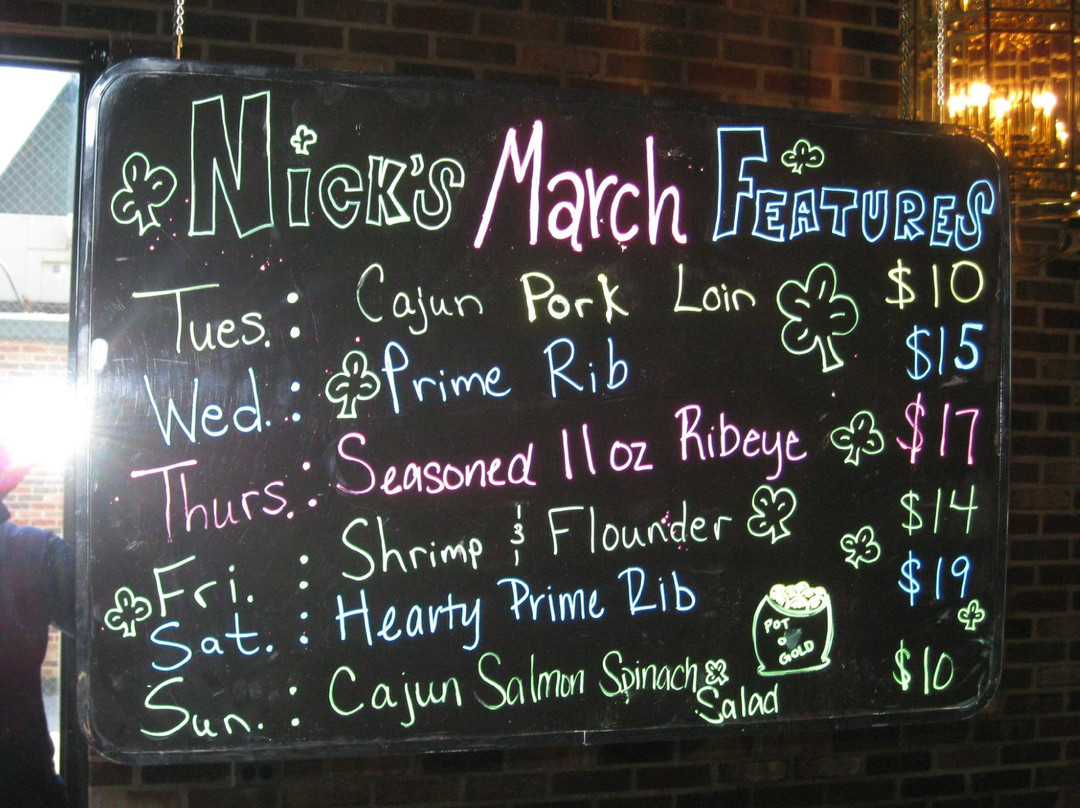 Nick's March Features
Tues. : Cajun Pork Loin $10
Wed. : Prime Rib $15
Thurs. : Seasoned 11 oz Ribeye $17
Fri. : Shrimp & Flounder $14
Sat. : Hearty Prime Rib $19
POT
O
GOLD
Sun. : Cajun Salmon Spinach $10
Salad